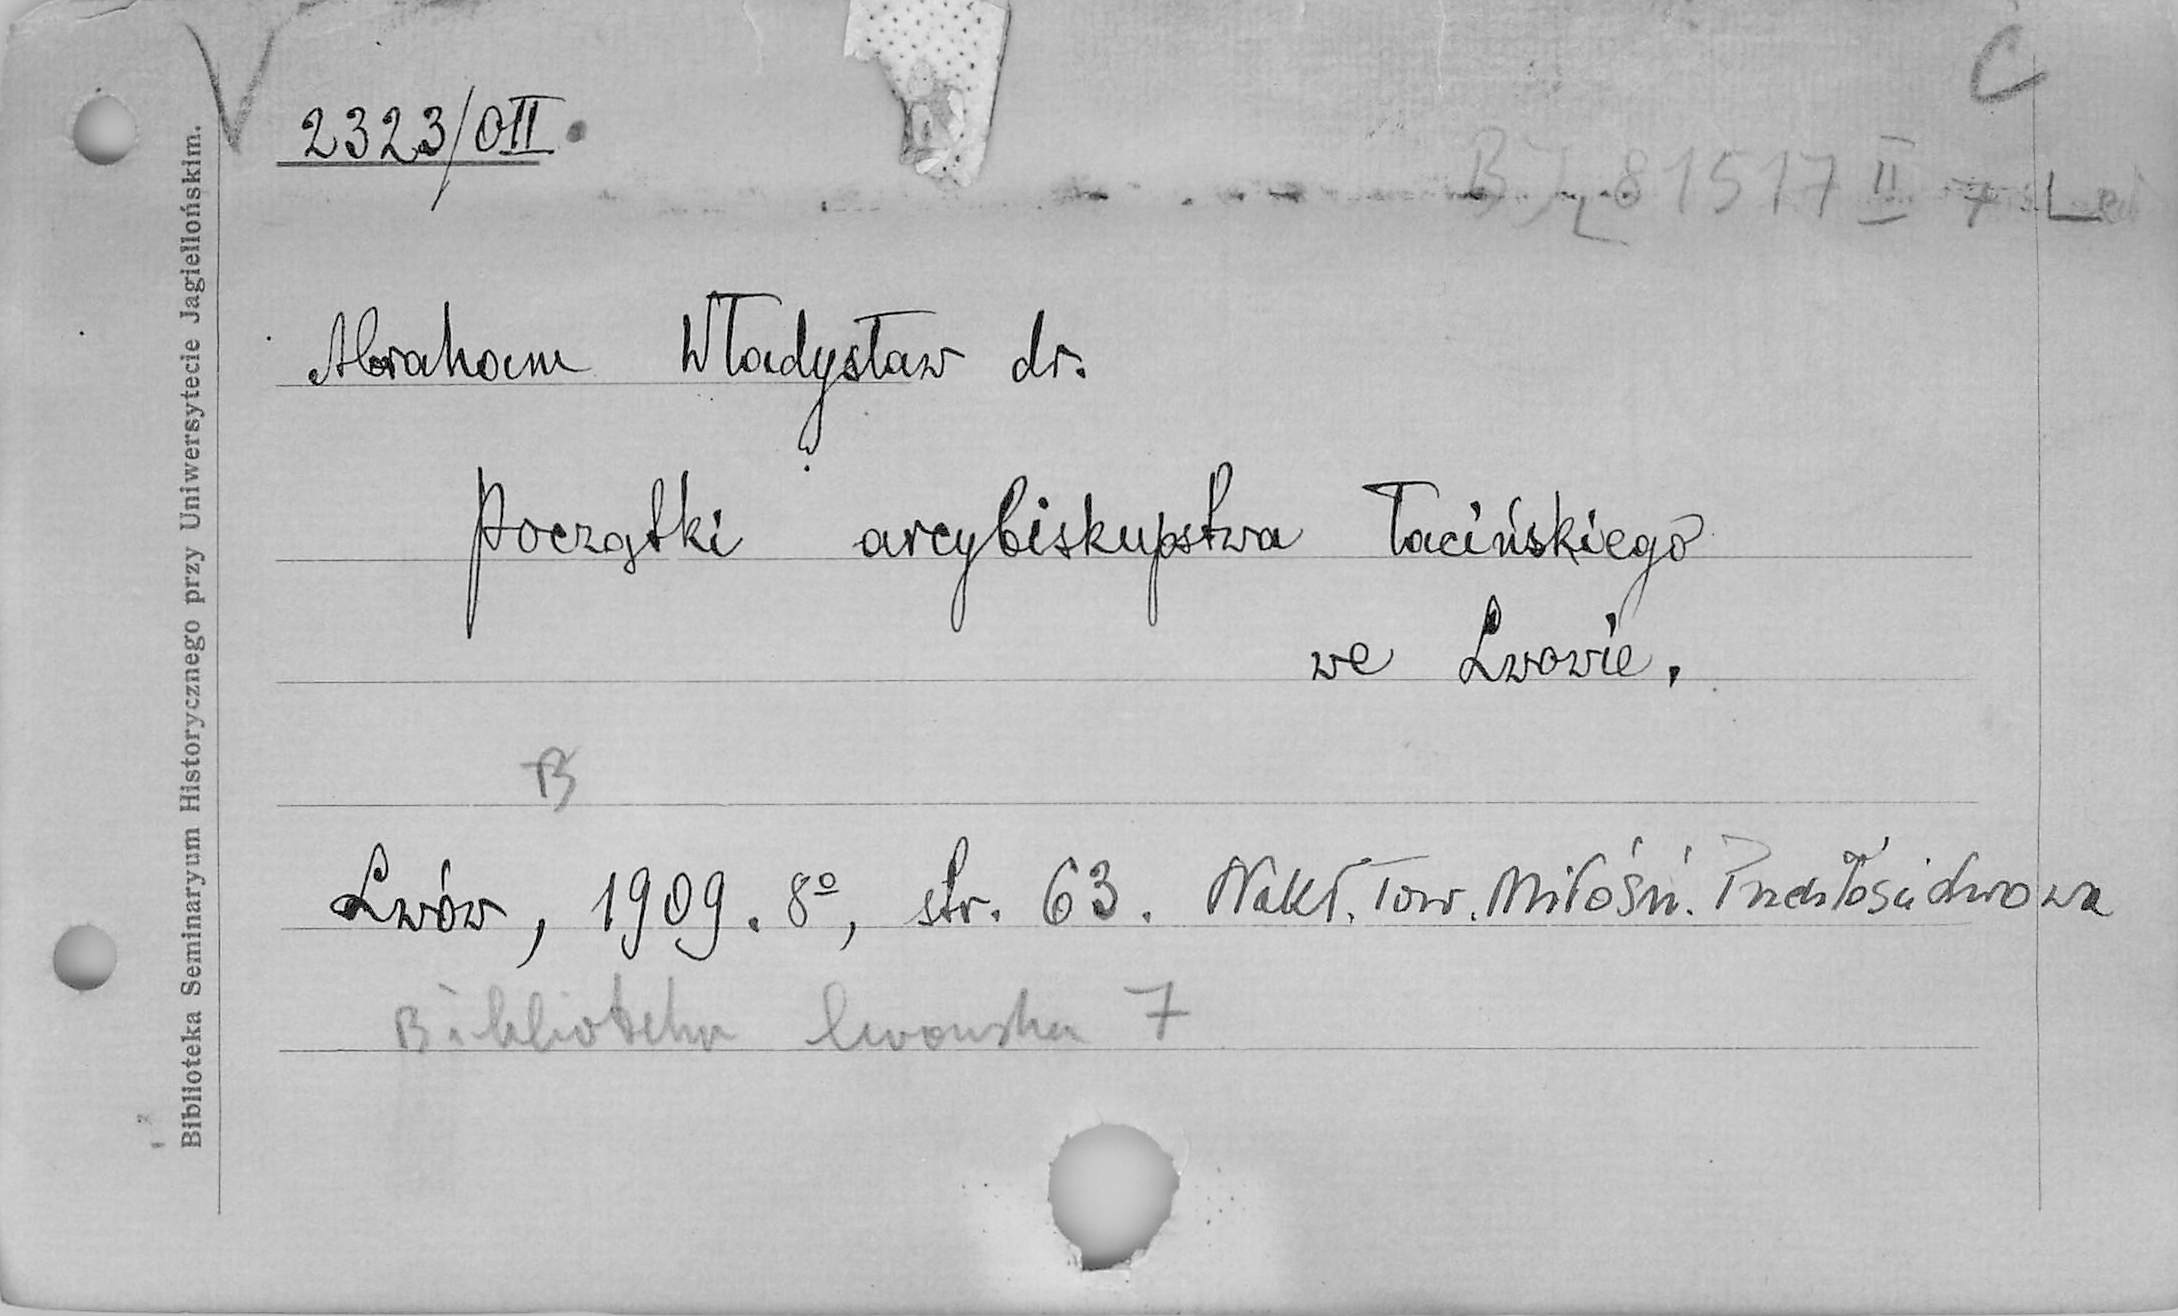 C
2323/OII.
BJ 81517 II 7
Abraham Władysław dr.
Początki arcybiskupstwa łacińskiego
we Lwowie.
B
Lwów, 1909. 8º, str. 63. Nakł. Tow. Miłośn. Przeszłości Lwowa
Biblioteka lwowska 7
Biblioteka Seminaryum Historycznego przy Uniwersytecie Jagiellońskim.